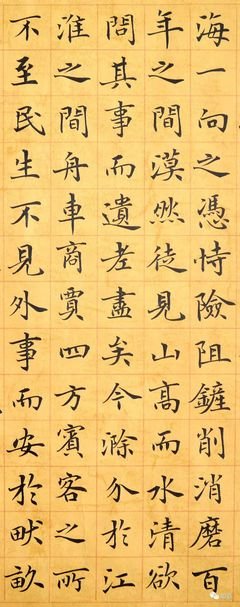 海一向之憑恃險阻鏟削消磨百
年之間漠然徒見山高而水清欲
問其事而遺老盡矣今滁介於江
淮之間舟車商賈四方賓客之所
不至民生不見外事而安於畎畝